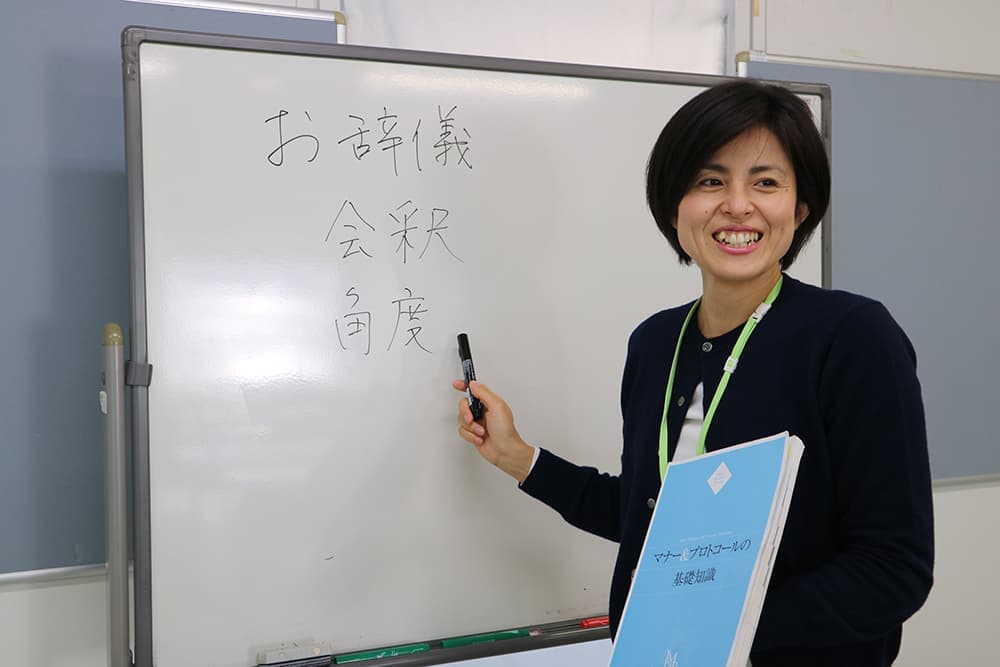 お辞儀
会釈
角度
マナー&プロトコールの
基礎知識